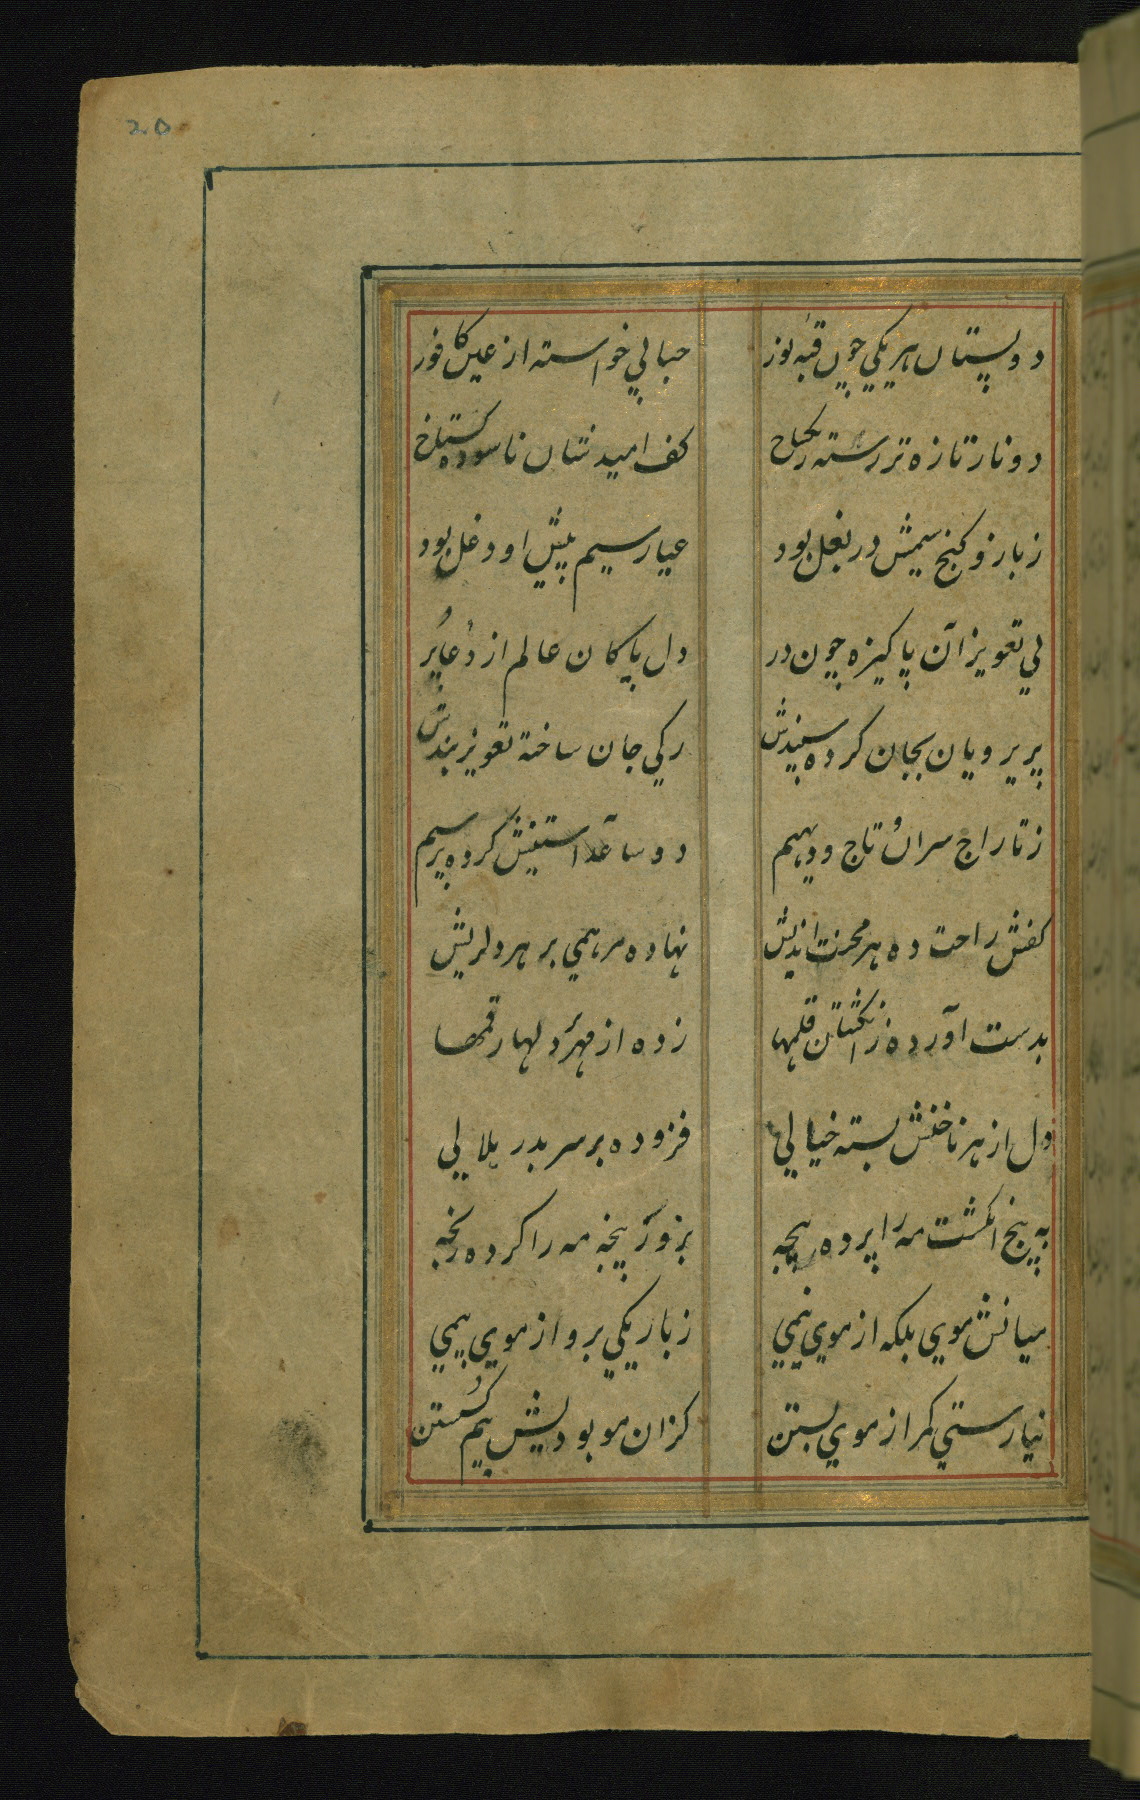 20
دو پستان هر یکی چون قبه نور حبابی خواسته از عین کافور
دو نار تازه تر رسته ز یکشاخ کف امید نشان ناسوده گستاخ
ز بازو گنج سیمش در بغل بود عیار سیم پیش او دغل بود
پی تعویز آن پاکیزه چون در دل پاکان عالم از دعا پر
پریرویان بجان کرده سپندش رکی جان ساخته تعویز بندش
ز تاراج سران تاج و دیهیم دو ساعد آستینش کرده پر سیم
کفش راحت ده هر محنت اندیش نهاده مرهمی بر هر دلریش
بدست آورده ز انکشتان قلمها زده از مهر بر دلها رقمها
دل از هر ناخنش بسته خیالی فزوده بر سر بدر هلالی
به پنج انکشت مه را برده پنجه بزور پنجه مه را کرده رنجه
میانش موی بلکه از موی نیمی ز باریکی برو از موی بیمی
نیارستی کمر از موی بستن کزان مو بودیش بیم گسستن